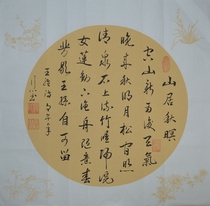 山居秋暝
空山新雨後天氣
晚来秋明月松間照
清泉石上流竹喧歸浣
女蓮動下漁舟隨意春
芳歇王孫自可留
王維詩